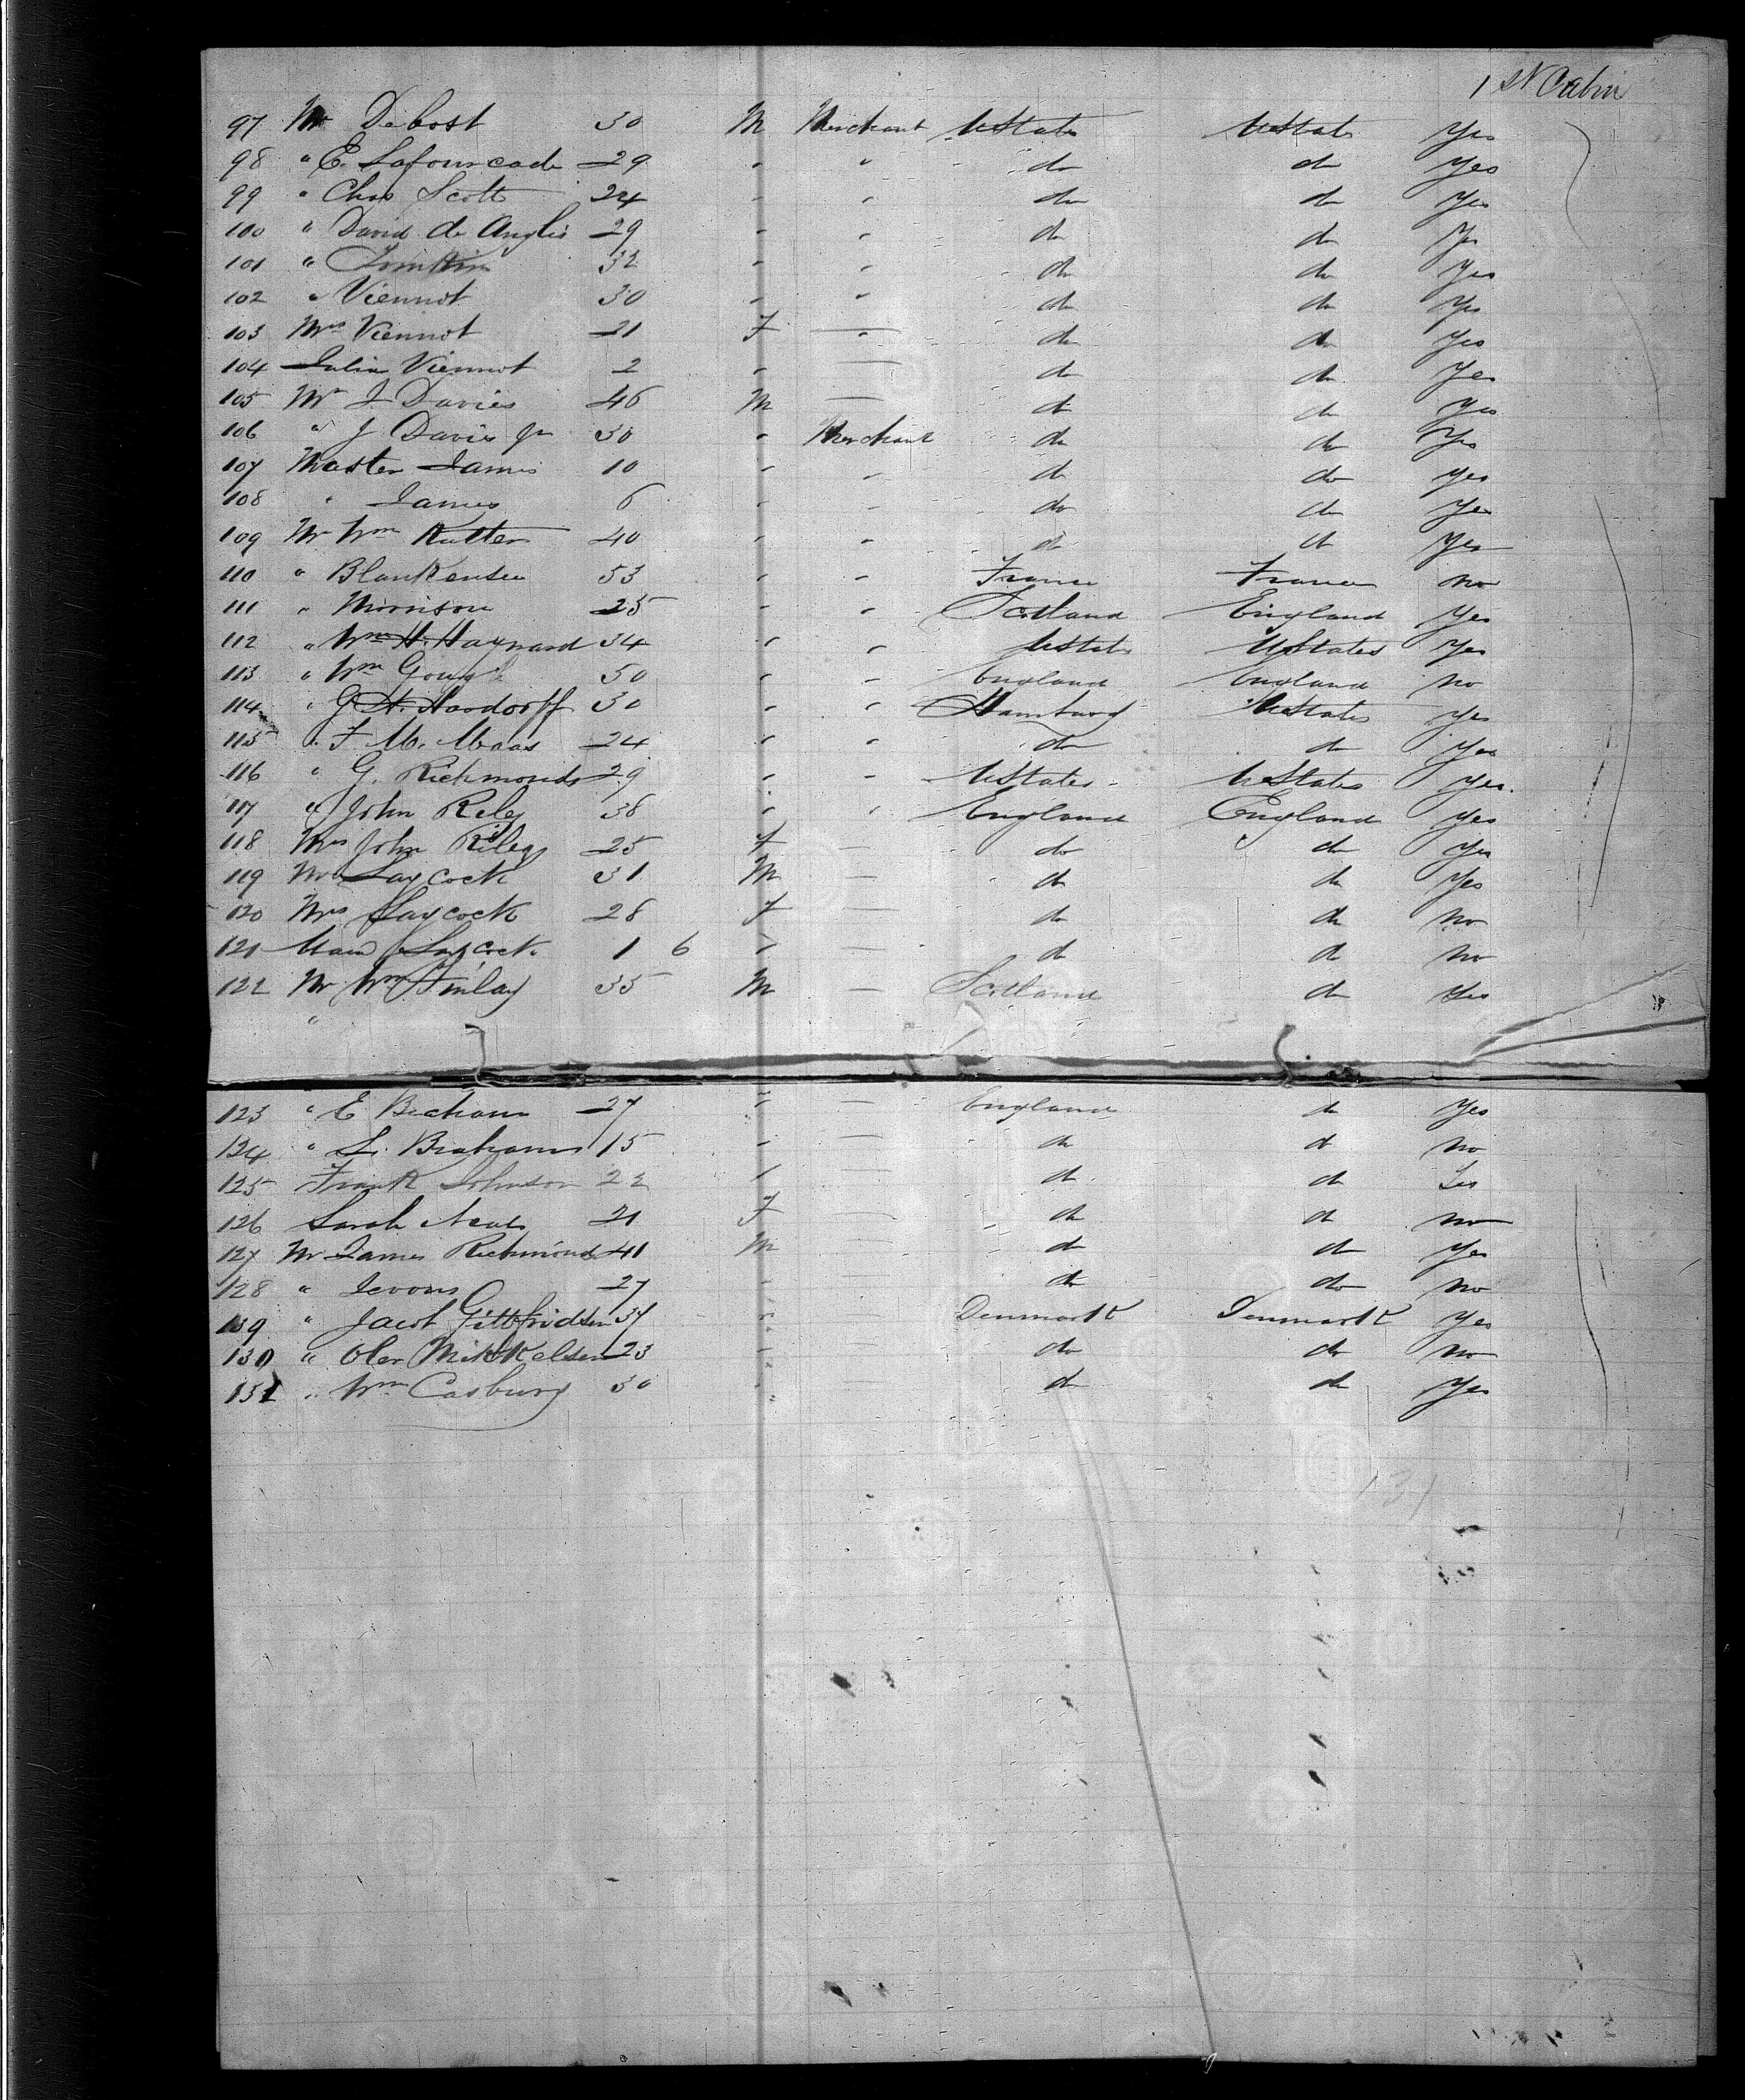 1 st Cabin
97 Mr Debost 30 M Merchant UStates UStats Yes
98 " E. Lafourcade 29 " " do do Yes
99 " Chas Scott 24 " " do do Yes
100 " David de Anglis 29 " " do do Ys
101 " 32 " " do do Yes
102 " Viennot 30 " " do do Yes
103 Mrs Viennot 21 F — " do do Yes
104 Julia Viennot 2 " — do do Yes
105 Mr J Davies 46 M — do do Yes
106 " J Davis Jr 30 " Merchant do do Yes
107 Master James 10 " " do do yes
108 " James 6 " do do Yes
109 Mr Wm Rutter 40 " " do do Yes
110 " Blankensee 53 " " France France no
111 " Morrison 25 " " Scotland England Yes
112 " Wm H. Hayward 34 " " UStats UStates Yes
113 " Wm Gough 50 " " England England no
114 " G H. Hardorff 30 " " Hamburg UStates Yes
115 " F. M. Maas 24 " " do do Yes
116 " G. Richmonds 29 " " UStates UStates Yes.
117 " John Riley 38 " " England England Yes
118 Mrs John Riley 25 F — do do Yes
119 Mr Laycock 31 M — do do Yes
120 Mrs Laycock 28 F — do do no
121 Laycock 1 6 " — do do no
122 Mr Wm Finlay 35 M — Scotland do Yes
"
123 " E 27 " — England do Yes
124 " 15 " — do do no
125 Frank Johnson 22 " — do do Yes
126 Sarah 21 F — do do no
127 Mr James Richmonds 41 M — do do Yes
128 " Jevons 27 " — do do no
139 " Jacob Gittfridsen 37 " — Denmark Denmark Yes
130 " Oler Mikkelsen 23 " — do do no
131 " Wm Casburg 30 " — do do Yes
131